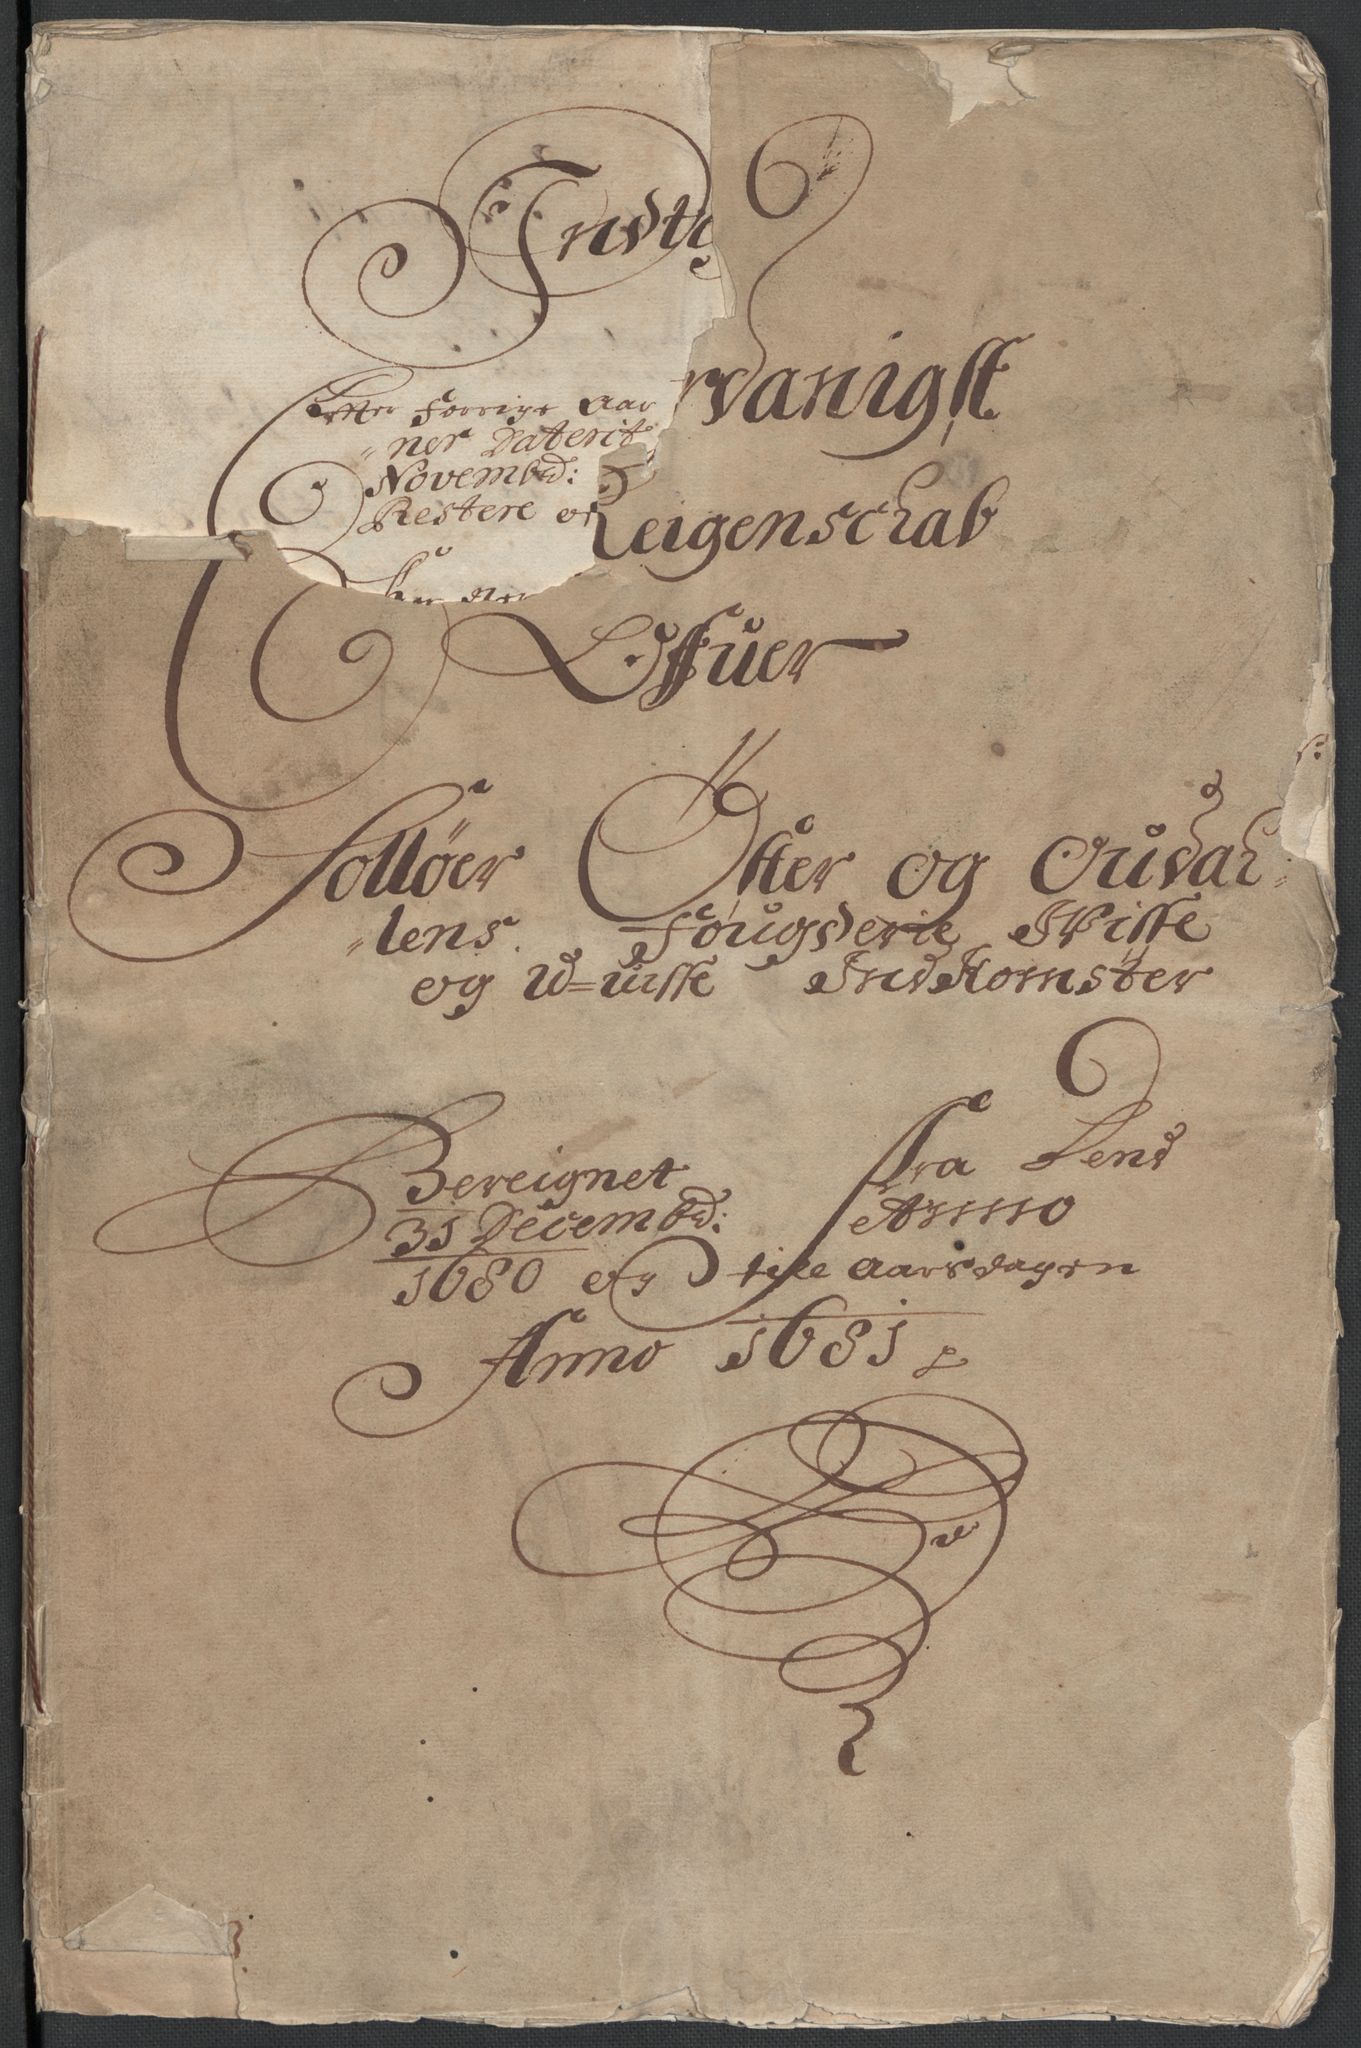 Indtæ
rdanigst
Effter Forrige Aar
„ner Daterit
Novembd:
Restere o
Reigenschab
Offuer
Sollöer Öster og Ourdah
„lens. Fougderie Wisse
og U=uisse IndKomster
Bereignet Fra Dend
31 Decembd: Anno
1680 og till Aarsdagen
Anno 1681